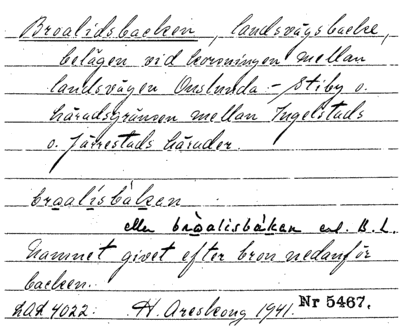 Broalidsbacken, landsvägsbacke,
belägen vid korsningen mellan
landsvägen Onslunda - Stiby o.
häradsgränsen mellan Ingelstads
o. Järrestads härader.
braalisbakən
eller bròalisbákən enl. B. L.
Namnet givet efter bron nedanför
backen.
LAL 4022. H. Areskoug 1941. Nr 5467.